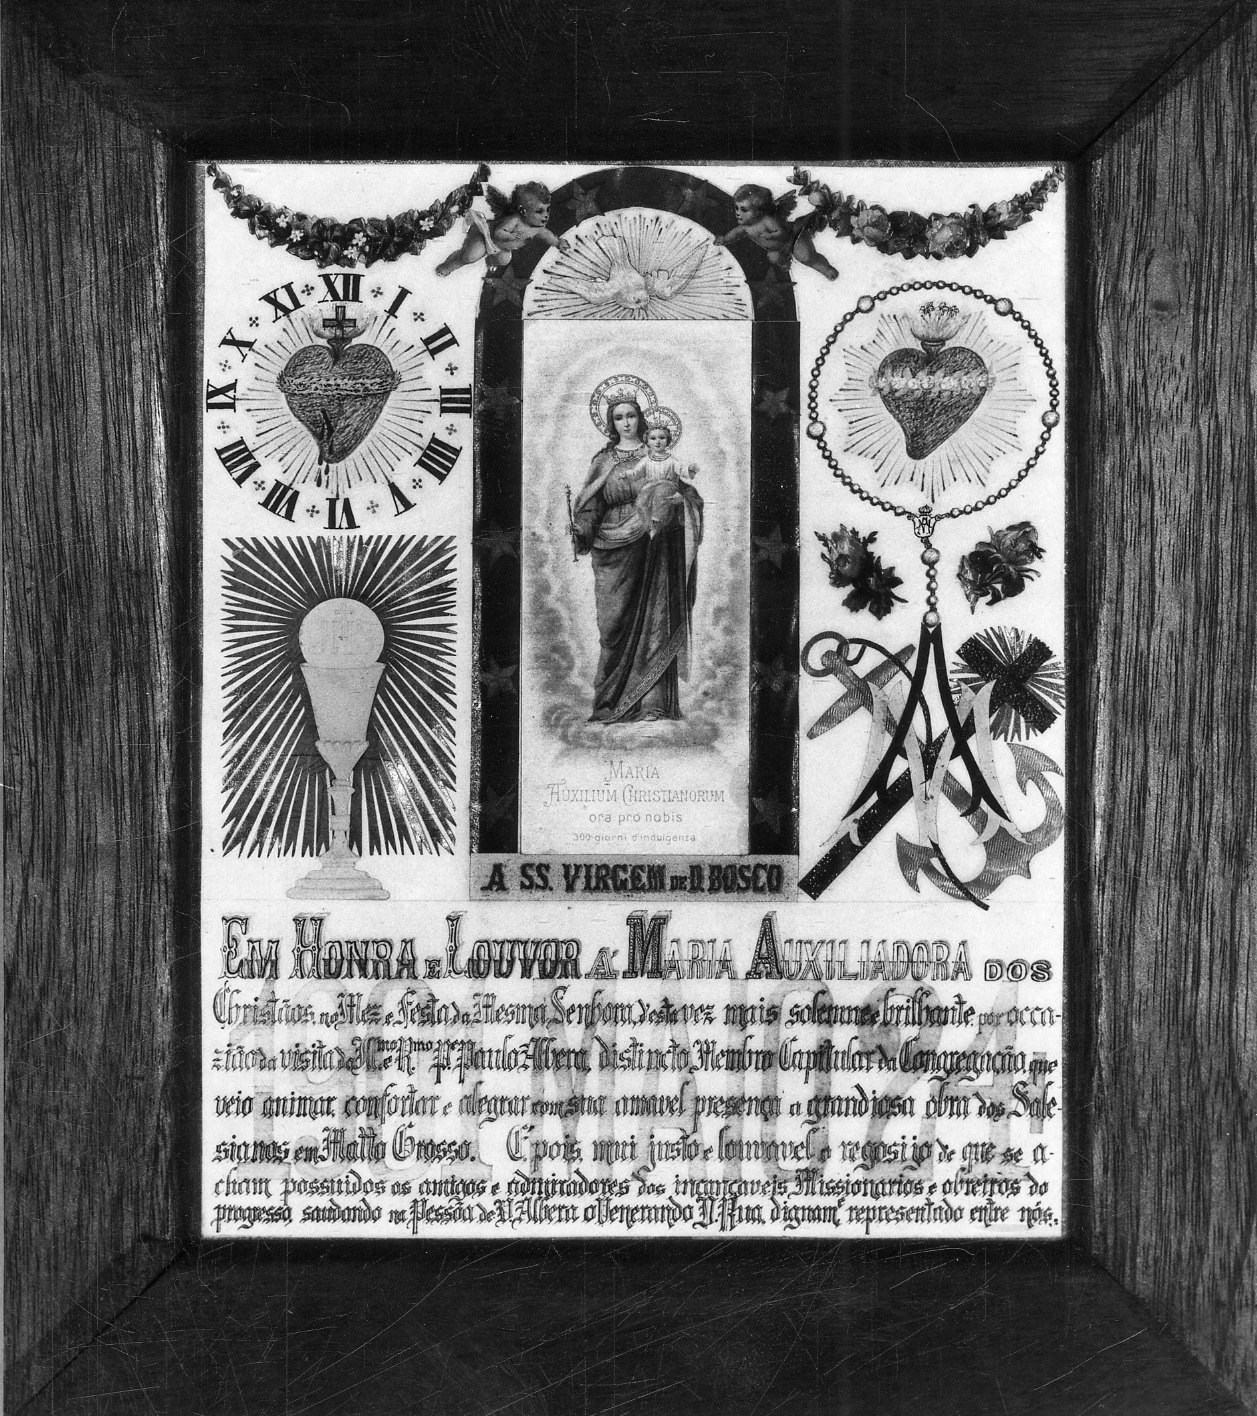 XII
I
II
III
IIII
V
VI
VII
VIII
IX
X
XI
MARIA
AUXILIUM CHRISTIANORUM
ora pro nobis
300 giorni d'indulgenza
A SS. VIRGEM DE D. BOSCO
EM HONRA E LOUVOR Á MARIA AUXILIADORA DOS
Christãos, no Mez e Festa da Mesma Senhora, d'esta vez mais solemne e brilhante, por occa-
zião da visita do Illmo e Rmo Pe Paulo Albera, distincto Membro Capitular da Congregação, que
veio animar, confortar e alegrar com sua amavel presença a grandiosa obra dos Sale-
sianos em Matto Grosso. É pois, mui justo e louvavel o regosijo de que se a-
cham possuidos os amigos e admiradores dos incançaveis Missionarios e obreiros do
progresso, saudando na Pessôa de D. Albera o Venerando D. Rua, dignamte representado entre nós.
MAIO 24